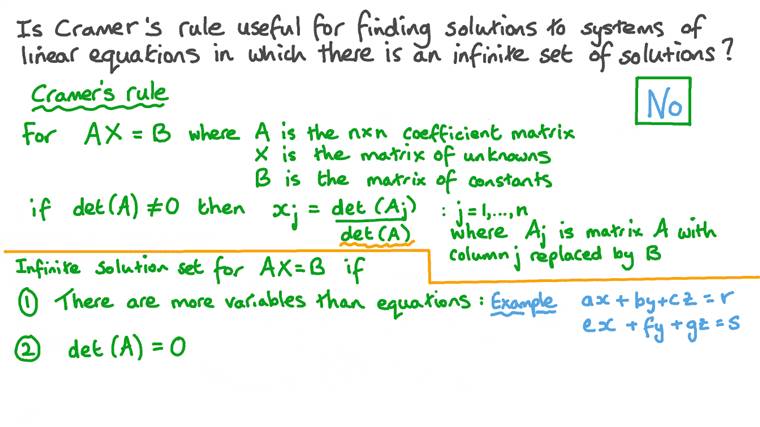 Is Cramer's rule useful for finding solutions to systems of
linear equations in which there is an infinite set of solutions?
Cramer's rule
No
For AX = B where A is the n×n coefficient matrix
X is the matrix of unknowns
B is the matrix of constants
if det(A) ≠ 0 then xj = det(Aj) / det(A) : j=1,...,n
where Aj is matrix A with
column j replaced by B
Infinite solution set for AX=B if
① There are more variables than equations : Example ax + by + cz = r
ex + fy + gz = s
② det(A) = 0